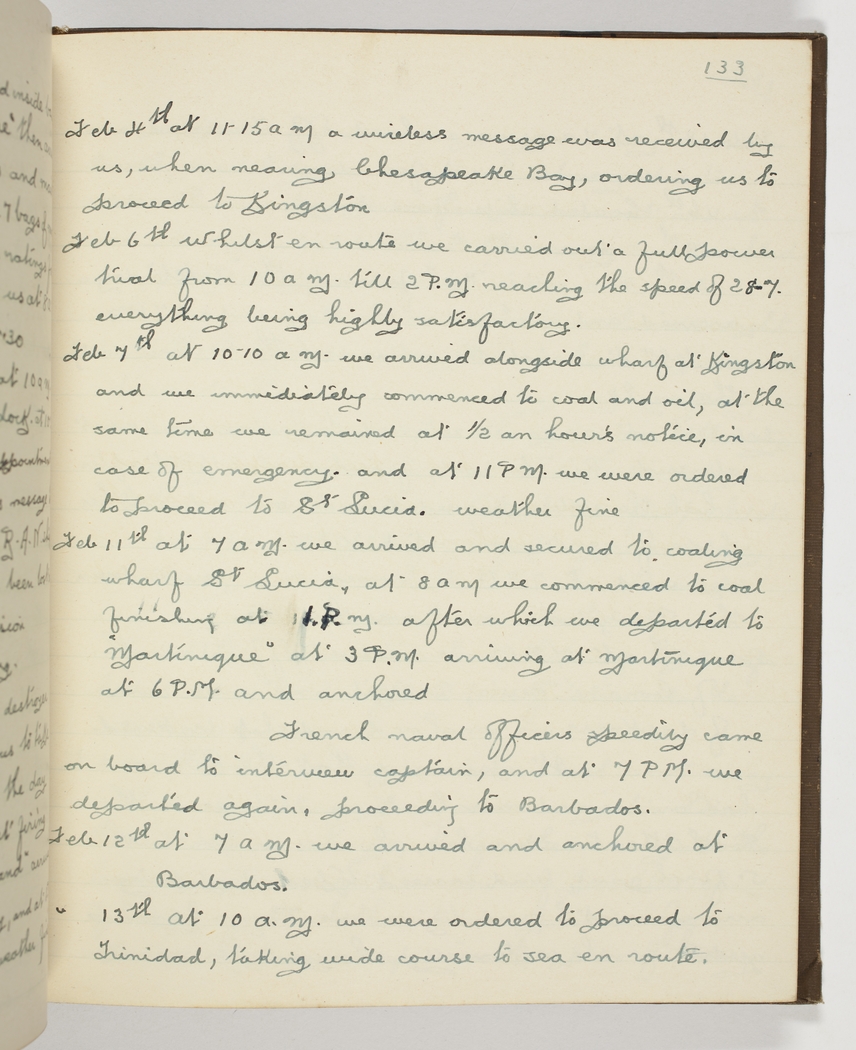 133
Feb 4th at 11-15 a m a wireless message was received by
us, when nearing Chesapeake Bay, ordering us to
proceed to Kingston
Feb 6th whilst en route we carried out a full power
trial from 10 a m. till 2 P.M. reaching the speed of 28-7.
everything being highly satisfactory.
Feb 7th at 10-10 a m. we arrived alongside wharf at Kingston
and we immediately commenced to coal and oil, at the
same time we remained at 1/2 an hour's notice, in
case of emergency. and at 11 P M. we were ordered
to proceed to St Lucia. weather fine
Feb 11th at 7 a m. we arrived and secured to coaling
wharf St Lucia, at 8 a m we commenced to coal
finishing at 1.P.m. after which we departed to
"Martinique" at 3 P.M. arriving at Martinique
at 6 P.M. and anchored
French naval officers speedily came
on board to interview captain, and at 7 P M. we
departed again, proceeding to Barbados.
Feb 12th at 7 a m. we arrived and anchored at
Barbados.
" 13th at 10 a.m. we were ordered to proceed to
Trinidad, taking wide course to sea en route.